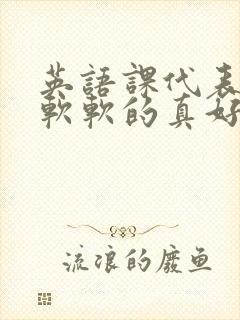 英語課代表
軟軟的真好
流浪的廢鱼